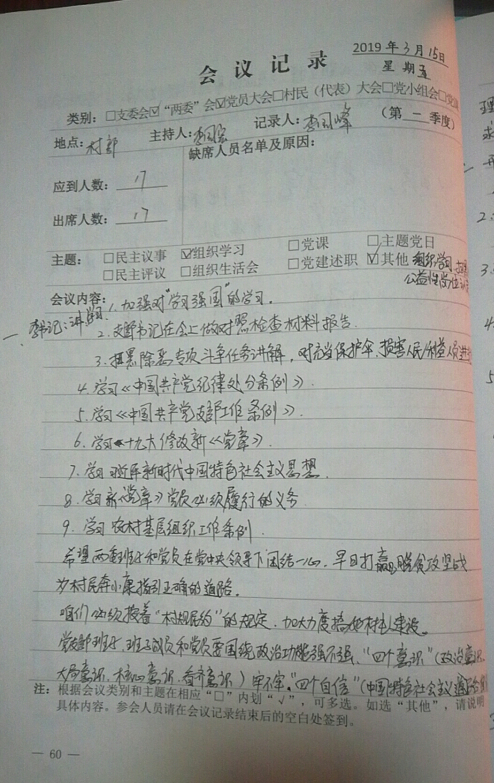 2019年3月15日
会议记录
星期五
类别：□支委会☑“两委”会☑党员大会□村民（代表）大会□党小组会□党
（第一季度）
地点：村部
主持人：
记录人：
缺席人员名单及原因：
应到人数：17
出席人数：17
主题：□民主议事 ☑组织学习 □党课 □主题党日
□民主评议 □组织生活会 □党建述职 ☑其他 组织学习
公益性岗位
会议内容：1.加强对“学习强国”的学习。
一、书记：讲
2.支部书记在会上做对照检查材料报告.
3.扫黑除恶专项斗争任务讲解，对充当保护伞、损害人民利益人员
4.学习《中国共产党纪律处分条例》.
5.学习《中国共产党支部工作条例》.
6.学习十九大修改新《党章》.
7.学习习近平新时代中国特色社会主义思想.
8.学习新《党章》党员必须履行的义务
9.学习农村基层组织工作条例.
希望两委班子和党员在党中央领导下团结一心，早日打赢脱贫攻坚战
为村民奔小康指引正确的道路。
咱们必须按着“村规民约”的规定，加大力度搞好村建设。
党支部班子，班子成员和党员要围绕政治功能强不强，“四个意识”（政治意识
大局意识、核心意识、看齐意识）牢不牢，“四个自信”（中国特色社会主义道路自信
注：根据会议类别和主题在相应“□”内划“√”，可多选。如选“其他”，请说明
具体内容。参会人员请在会议记录结束后的空白处签到。
— 60 —